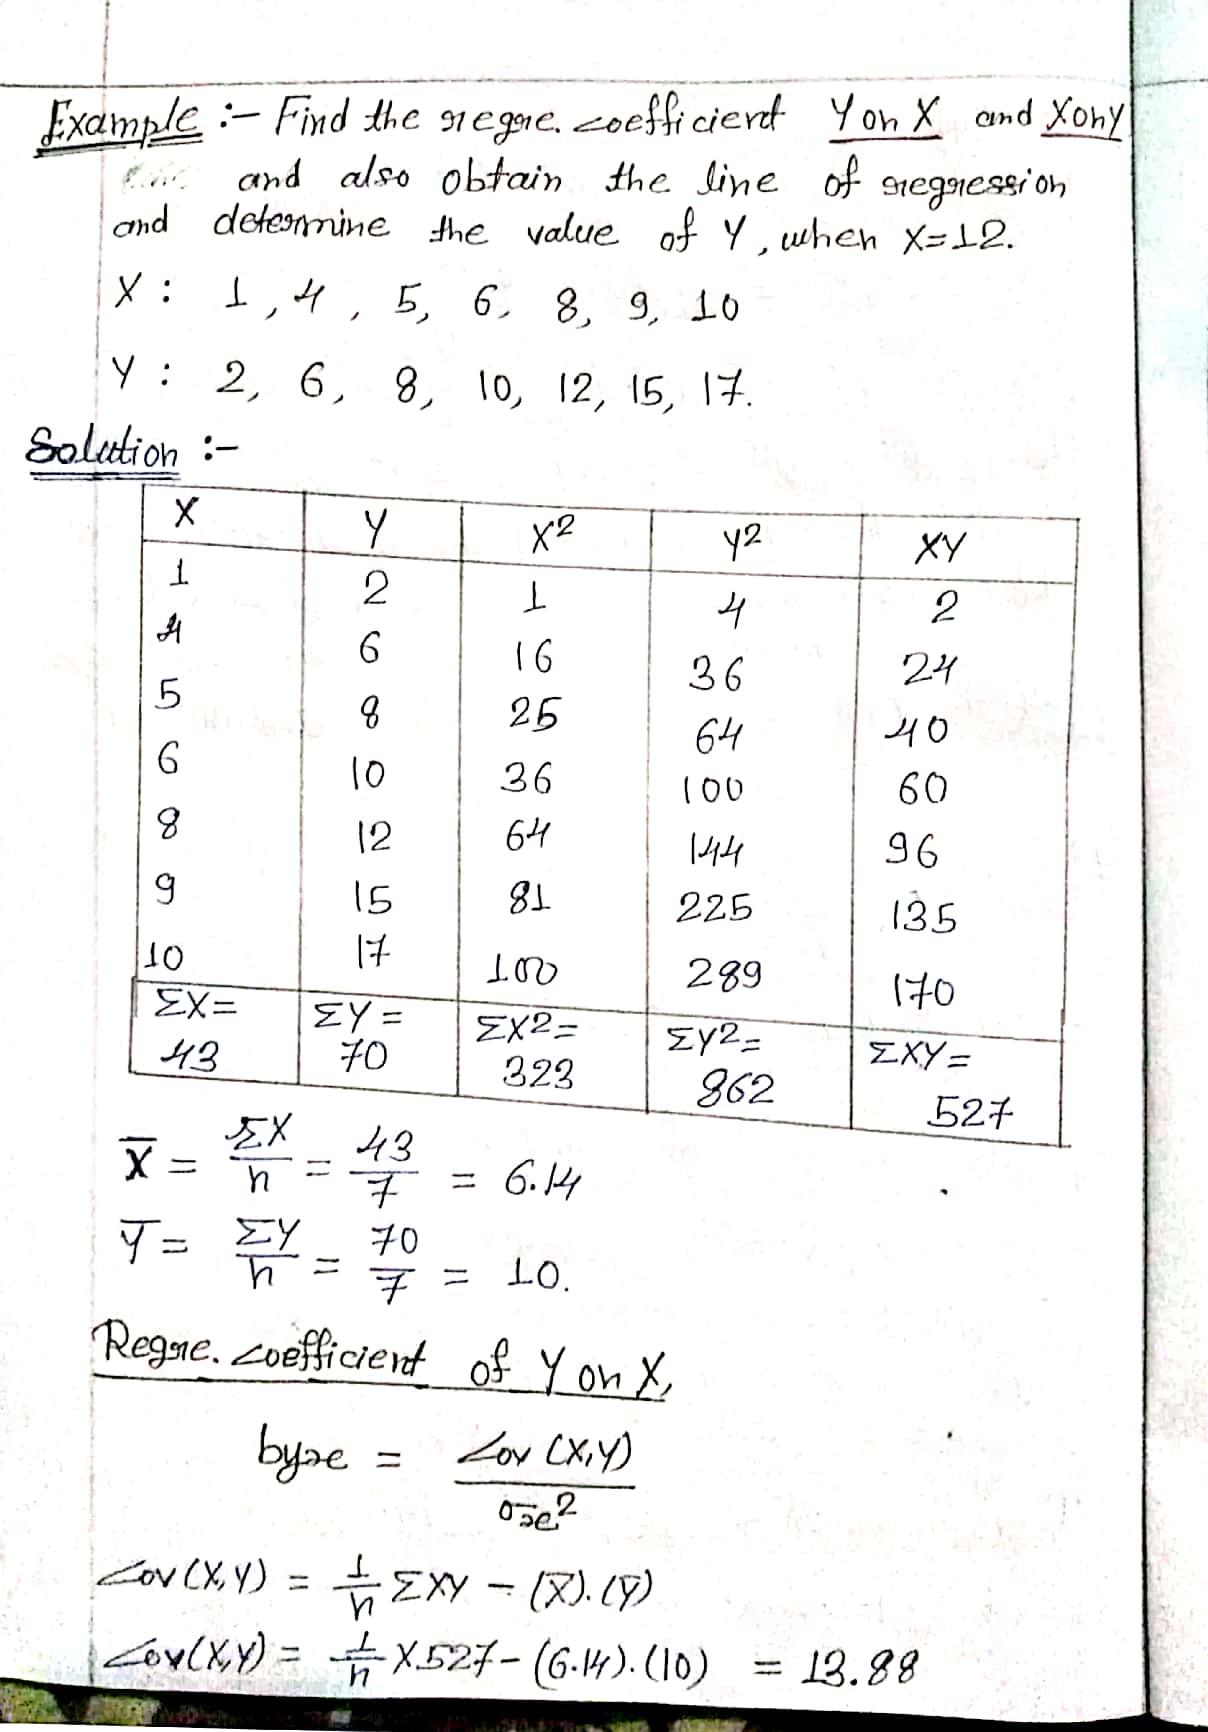 Example :- Find the regre. coefficient Y on X and X on Y
and also obtain the line of regression
and determine the value of Y, when X=12.
X : 1, 4, 5, 6, 8, 9, 10
Y : 2, 6, 8, 10, 12, 15, 17.
Solution :-
X Y X2 Y2 XY
1 2 1 4 2
4 6 16 36 24
5 8 25 64 40
6 10 36 100 60
8 12 64 144 96
9 15 81 225 135
10 17 100 289 170
ΣX= ΣY= ΣX2= ΣY2= ΣXY=
43 70 323 862 527
X̅ = ΣX/n = 43/7 = 6.14
Y̅ = ΣY/n = 70/7 = 10.
Regre. coefficient of Y on X,
byx = Cov (X,Y)/σx2
Cov (X,Y) = 1/n ΣXY - (X̅).(Y̅)
Cov(X,Y) = 1/n X 527 - (6.14).(10) = 13.88